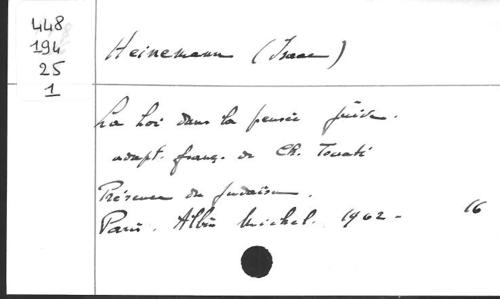 448
194
25
1
Heinemann (Isaac)
La Loi dans la pensée juive.
adapt. franç. de Ch. Touati
Présence du Judaïsme.
Paris. Albin Michel. 1962 - 16